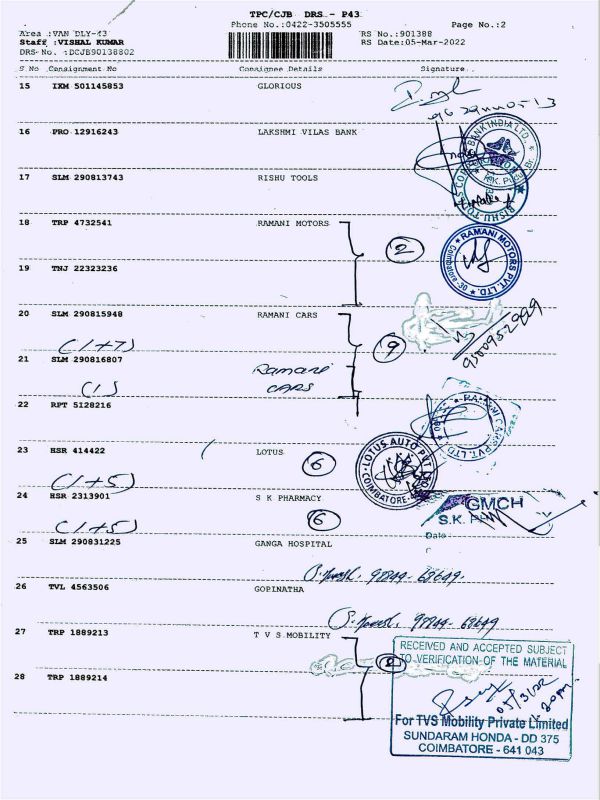 TPC/CJB DRS - P43
Phone No.:0422-3505555 Page No.:2
Area :VAN DLY-43 RS No.:901388
Staff :VISHAL KUMAR RS Date:05-Mar-2022
DRS No. :DCJB90138802
S No Consignment No Consignee Details Signature
15 IXM 501145853 GLORIOUS
16 PRO 12916243 LAKSHMI VILAS BANK
17 SLM 290813743 RISHU TOOLS
18 TRP 4732541 RAMANI MOTORS
2
RAMANI MOTORS PVT. LTD.
Coimbatore
19 TNJ 22323236
20 SLM 290815948 RAMANI CARS
(1+7)
9
9500952999
21 SLM 290816807
(1)
Ramani
CARS
22 RPT 5128216
RAMANI CARS PVT. LTD.
23 HSR 414422 LOTUS
(1+5)
6
LOTUS AUTO PVT
COIMBATORE
24 HSR 2313901 S K PHARMACY
(1+5)
6
GMCH
S.K.
Date
25 SLM 290831225 GANGA HOSPITAL
26 TVL 4563506 GOPINATHA
27 TRP 1889213 T V S MOBILITY
28 TRP 1889214
RECEIVED AND ACCEPTED SUBJECT
TO VERIFICATION OF THE MATERIAL
For TVS Mobility Private Limited
SUNDARAM HONDA - DD 375
COIMBATORE - 641 043